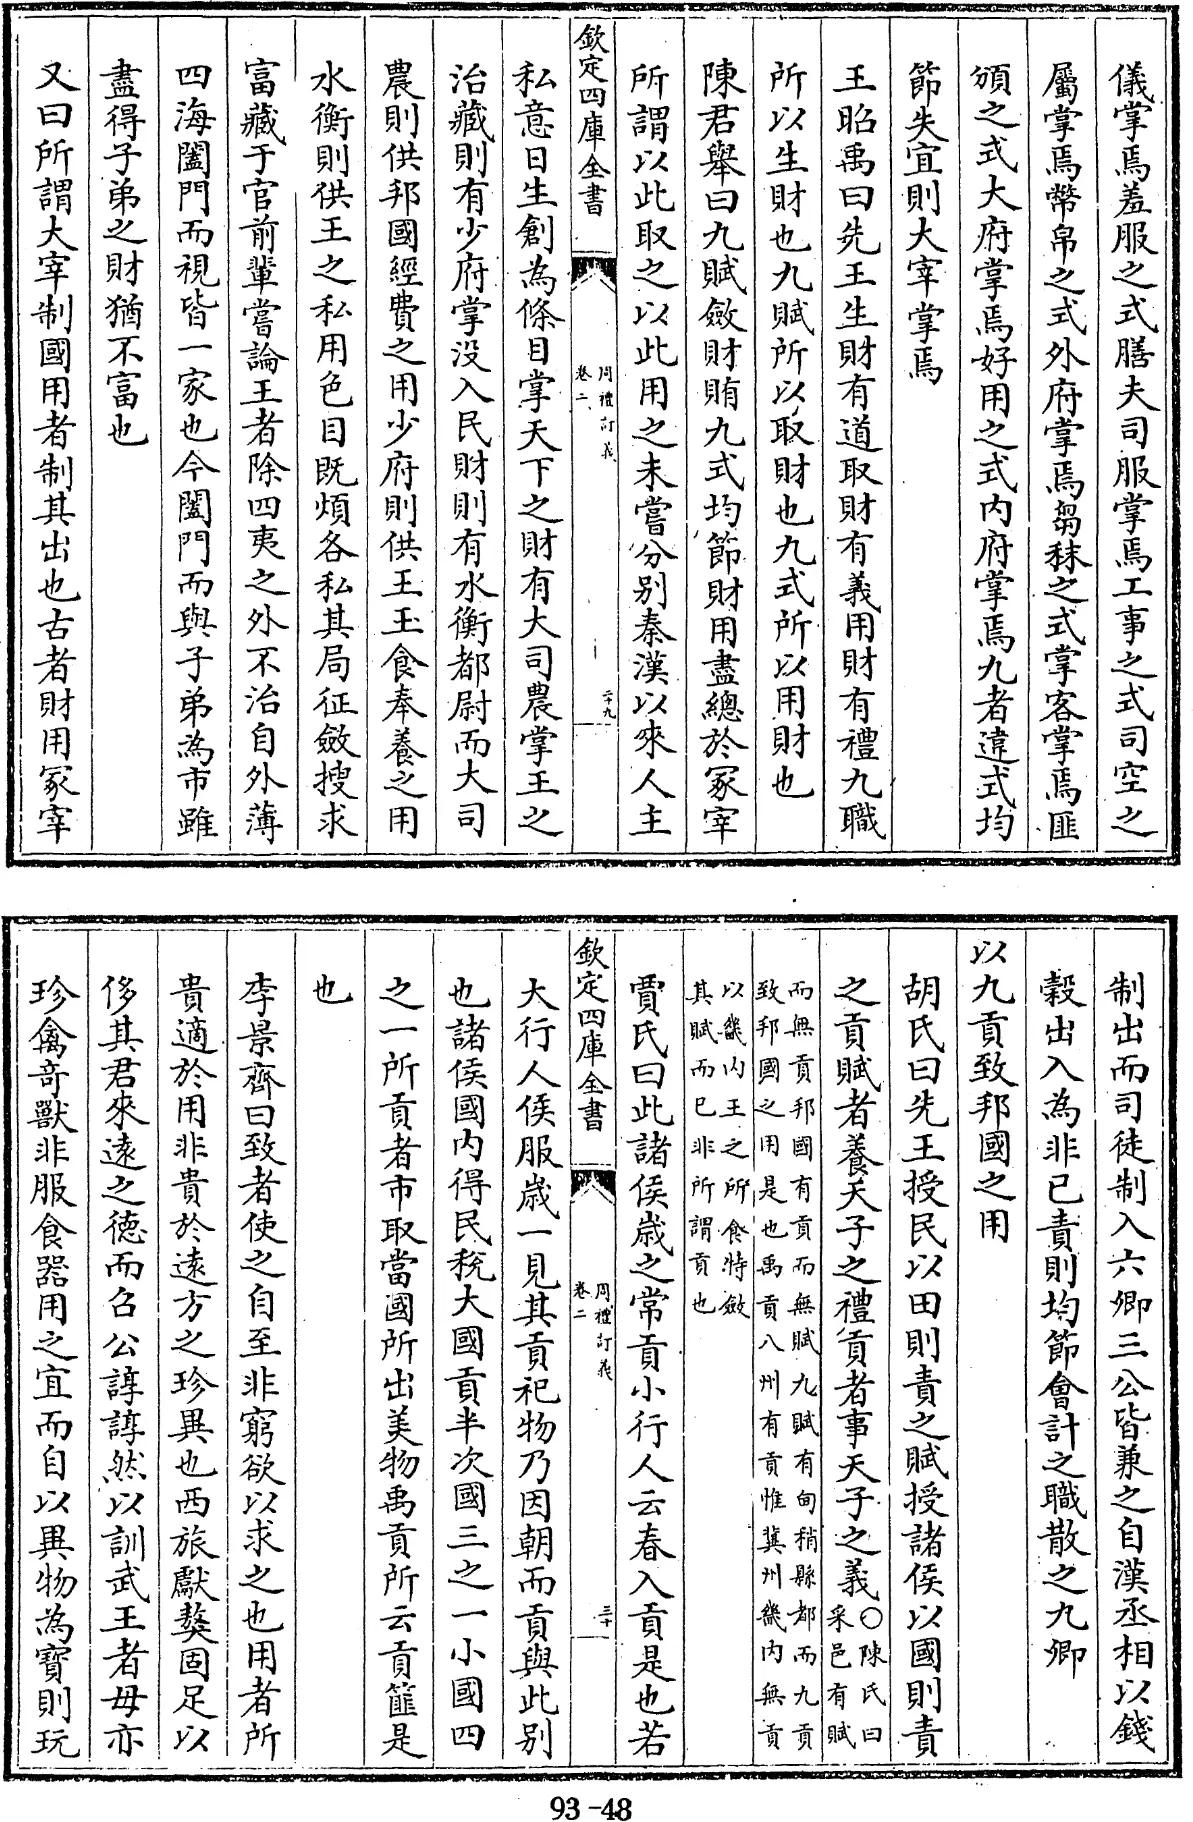 儀掌焉羞服之式膳夫司服掌焉工事之式司空之
屬掌焉幣帛之式外府掌焉芻秣之式掌客掌焉匪
頒之式大府掌焉好用之式内府掌焉九者違式均
節失宜則大宰掌焉
王昭禹曰先王生財有道取財有義用財有禮九職
所以生財也九賦所以取財也九式所以用財也
陳君舉曰九賦斂財賄九式均節財用盡總於冢宰
所謂以此取之以此用之未嘗分别秦漢以來人主
欽定四庫全書
周禮訂義
卷二
二十九
私意日生創為條目掌天下之財有大司農掌王之
治藏則有少府掌没入民財則有水衡都尉而大司
農則供邦國經費之用少府則供王玉食奉養之用
水衡則供王之私用色目既煩各私其局征斂搜求
富藏于官前輩嘗論王者除四夷之外不治自外薄
四海闔門而視皆一家也今闔門而與子弟為市雖
盡得子弟之財猶不富也
又曰所謂大宰制國用者制其出也古者財用冢宰
制出而司徒制入六卿三公皆兼之自漢丞相以錢
穀出入為非已責則均節會計之職散之九卿
以九貢致邦國之用
胡氏曰先王授民以田則責之賦授諸侯以國則責
之貢賦者養天子之禮貢者事天子之義〇陳氏曰
采邑有賦
而無貢邦國有貢而無賦九賦有甸稍縣都而九貢
致邦國之用是也禹貢八州有貢惟冀州畿内無貢
以畿内王之所食特斂
其賦而已非所謂貢也
賈氏曰此諸侯歲之常貢小行人云春入貢是也若
欽定四庫全書
周禮訂義
卷二
三十
大行人侯服歲一見其貢祀物乃因朝而貢與此别
也諸侯國内得民稅大國貢半次國三之一小國四
之一所貢者市取當國所出美物禹貢所云貢篚是
也
李景齊曰致者使之自至非窮欲以求之也用者所
貴適於用非貴於遠方之珍異也西旅獻獒固足以
侈其君來遠之德而召公諄諄然以訓武王者毋亦
珍禽奇獸非服食器用之宜而自以異物為寶則玩
93-48